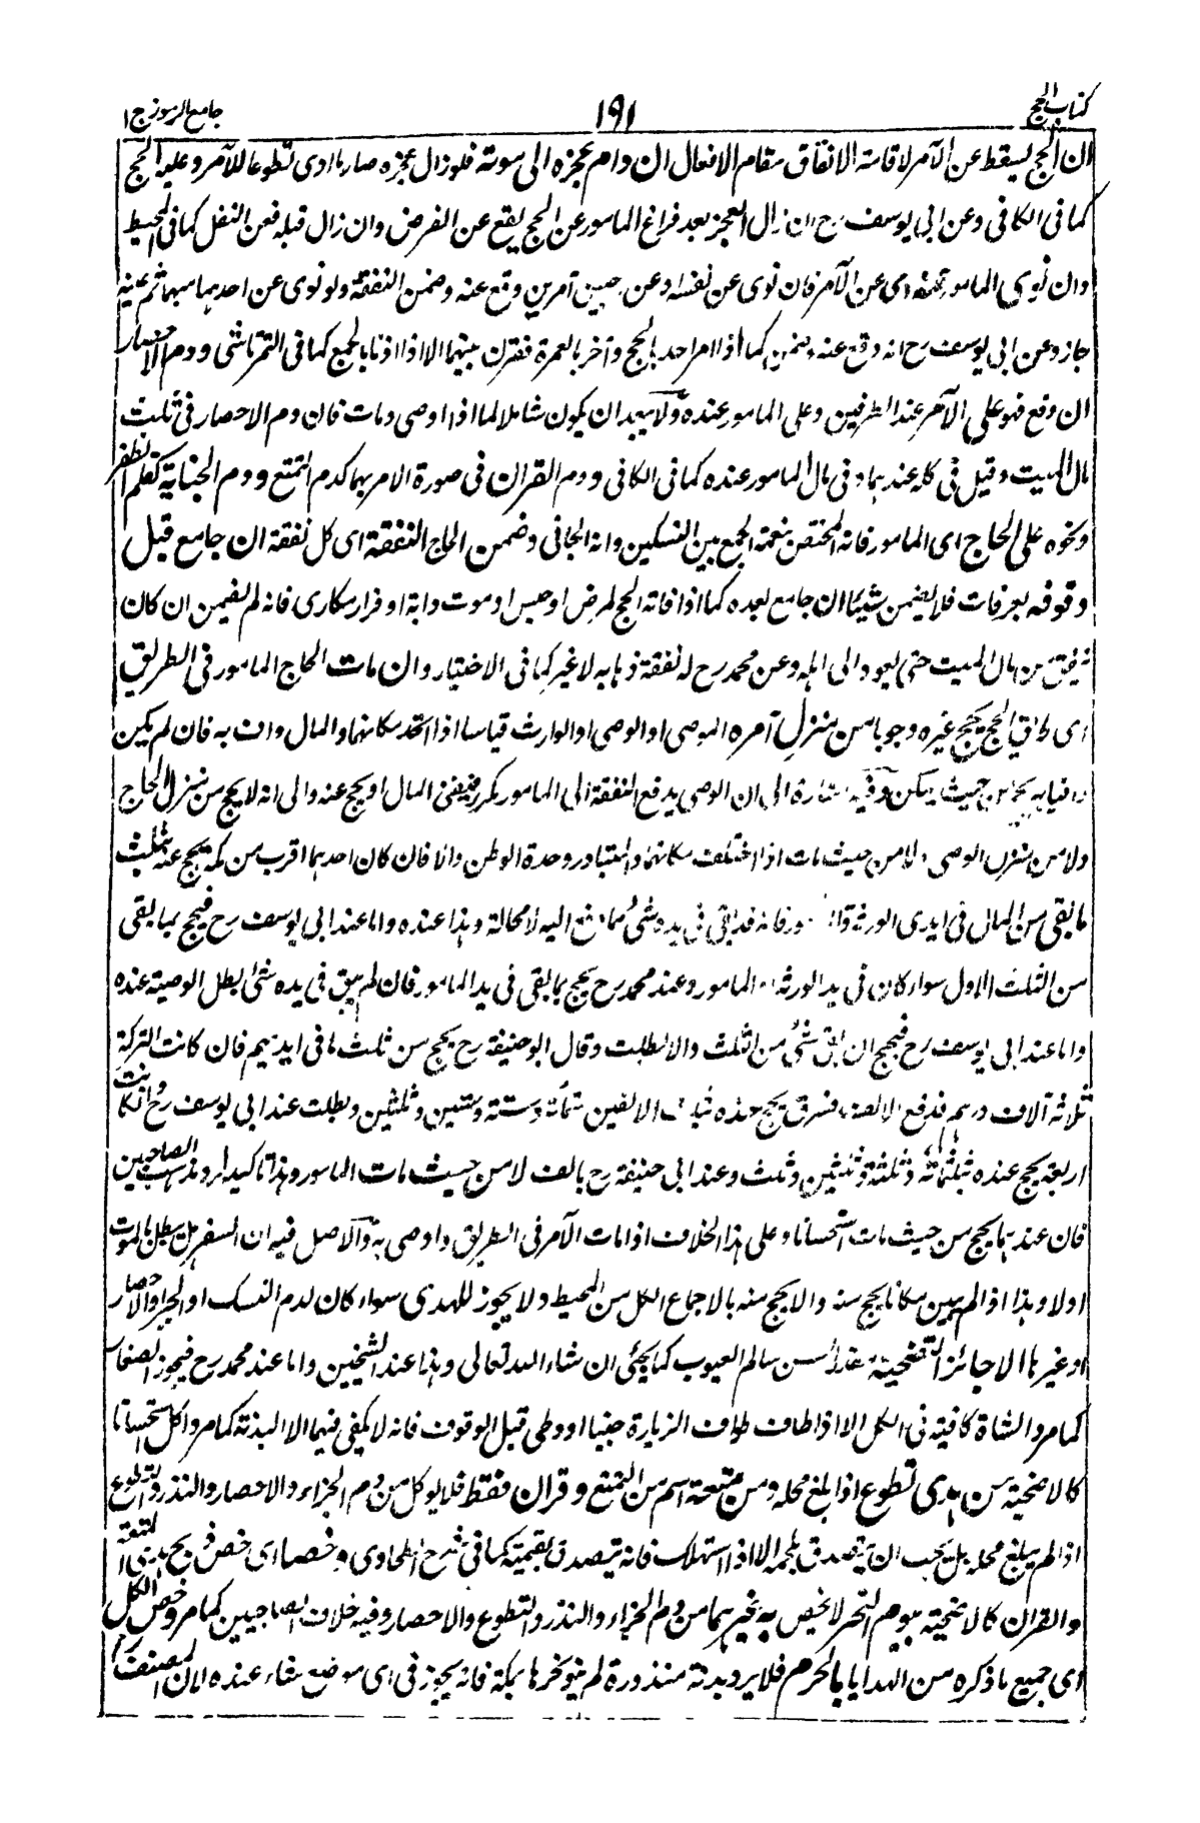 كتاب الحج
١٩١
جامع الرموز ج ١
ان الحج يسقط عن الآمر لاقامة الانفاق مقام الافعال ان دام عجزه الى موته فلو زال عجزه صار ما ادى تطوعا للآمر وعليه الحج
كما فى الكافى وعن ابى يوسف رح ان زال العجز بعد فراغ المامور عن الحج يقع عن الفرض وان زال قبله فعن النفل كما فى المحيط
وان نوى المامور عن الآمر فان نوى عن نفسه او عن آمرين وقع عنه وضمن النفقة ولو نوى عن احدهما مبهما ثم عينه
جاز وعن ابى يوسف رح انه وقع عنه وضمن كما اذا امر احد بالحج وآخر بالعمرة فقرن بينهما الا اذا اذنا بالجمع كما فى التمرتاشى ودم الاحصار
ان وقع فهو على الآمر عند الطرفين وعلى المامور عنده ولا يبعد ان يكون شاملا لما اذا اوصى ومات فان دم الاحصار فى ثلث
مال الميت وقيل فى كله عندهما وفى مال المامور عنده كما فى الكافى ودم القران فى صورة الامر بهما كدم التمتع ودم الجناية كقلم الظفر
ونحوه على الحاج اى المامور فانه المختص بنعمة الجمع بين النسكين وانه الجانى وضمن الحاج النفقة اى كل نفقة ان جامع قبل
وقوفه بعرفات فلا يضمن شيئا ان جامع بعده كما اذا فاته الحج لمرض او حبس او موت دابة او فرار مكارى فانه لم يضمن ان كان
نفقة من مال الميت حتى يعود الى اهله وعن محمد رح له نفقة ذهابه لا غير كما فى الاختيار وان مات الحاج المامور فى الطريق
اى طريق الحج يحج غيره وجوبا من منزل آمره الموصى او الوصى او الوارث قياسا اذا اتحد مكانهما والمال واف به فان لم يكن
وافيا به يحج من حيث يمكن وفيه اشارة الى ان الوصى يدفع النفقة الى المامور المال او يحج عنه والى انه لا يحج من منزل الحاج
ولا من منزل الوصى ولا من حيث مات اذا اختلف مكانهما والمتبادر وحدة الوطن والا فان كان احدهما اقرب من مكة يحج عنه بثلث
ما بقى من المال فى ايدى الورثة فانه قد بقى فى يده شئ مما دفع اليه لا محالة وهذا عنده واما عند ابى يوسف رح فيحج بما بقى
من الثلث الاول سواء كان فى يد الورثة او المامور وعند محمد رح يحج بما بقى فى يد المامور فان لم يبق فى يده شئ بطل الوصية عنده
واما عند ابى يوسف رح فيحج ان بقى شئ من الثلث والا بطلت وقال ابو حنيفة رح يحج من ثلث ما فى ايديهم فان كانت التركة
ثلاثة آلاف درهم فدفع الالف فسرق يحج عنده بثلث الالفين ستمائة وستة وستين وثلثين وبطلت عند ابى يوسف رح وان كانت
اربعة يحج عنده بثلثمائة وثلثة وثلثين وثلث وعند ابى حنيفة رح بالف لا من حيث مات المامور وهذا تاكيد لرد مذهب الصاحبين
فان عندهما يحج من حيث مات استحسانا وعلى هذا الخلاف اذا مات الآمر فى الطريق واوصى به والاصل فيه ان السفر هل يبطل بالموت
اولا وهذا اذا لم يبين مكانا يحج منه والا يحج منه بالاجماع الكل من المحيط ولا يجوز للهدى سواء كان لدم النسك او الجزاء والاحصار
او غيرها الا جائز التضحية من سالم العيوب كما يجئ ان شاء الله تعالى وهذا عند الشيخين واما عند محمد رح فيجوز الصغار
كما مر والشاة كافية فى الكل الا اذا طاف طواف الزيارة جنبا او وطى قبل الوقوف فانه لا يكفى فيهما الا البدنة كما مر واكل استحسانا
كالاضحية من هدى تطوع اذا بلغ محله ومن متعة اسم من التمتع وقران فقط فلا يوكل من دم الجزاء والاحصار والنذر والتطوع
اذا لم يبلغ محله بل يجب ان يتصدق بلحمه الا اذا استهلك فانه يتصدق بقيمته كما فى شرح الطحاوى وخصا اى خص ذبح هدى المتعة
والقران كالاضحية بيوم النحر لا يخص به غيرهما من دم الجزاء والنذر والتطوع والاحصار وفيه خلاف الصاحبين كما مر وخص الكل
اى جميع ما ذكره من الهدايا بالحرم فلا يرد بدنة منذورة لم ينو نحرها بمكة فانه يجوز فى اى موضع شاء عنده الا ان المصنف رح